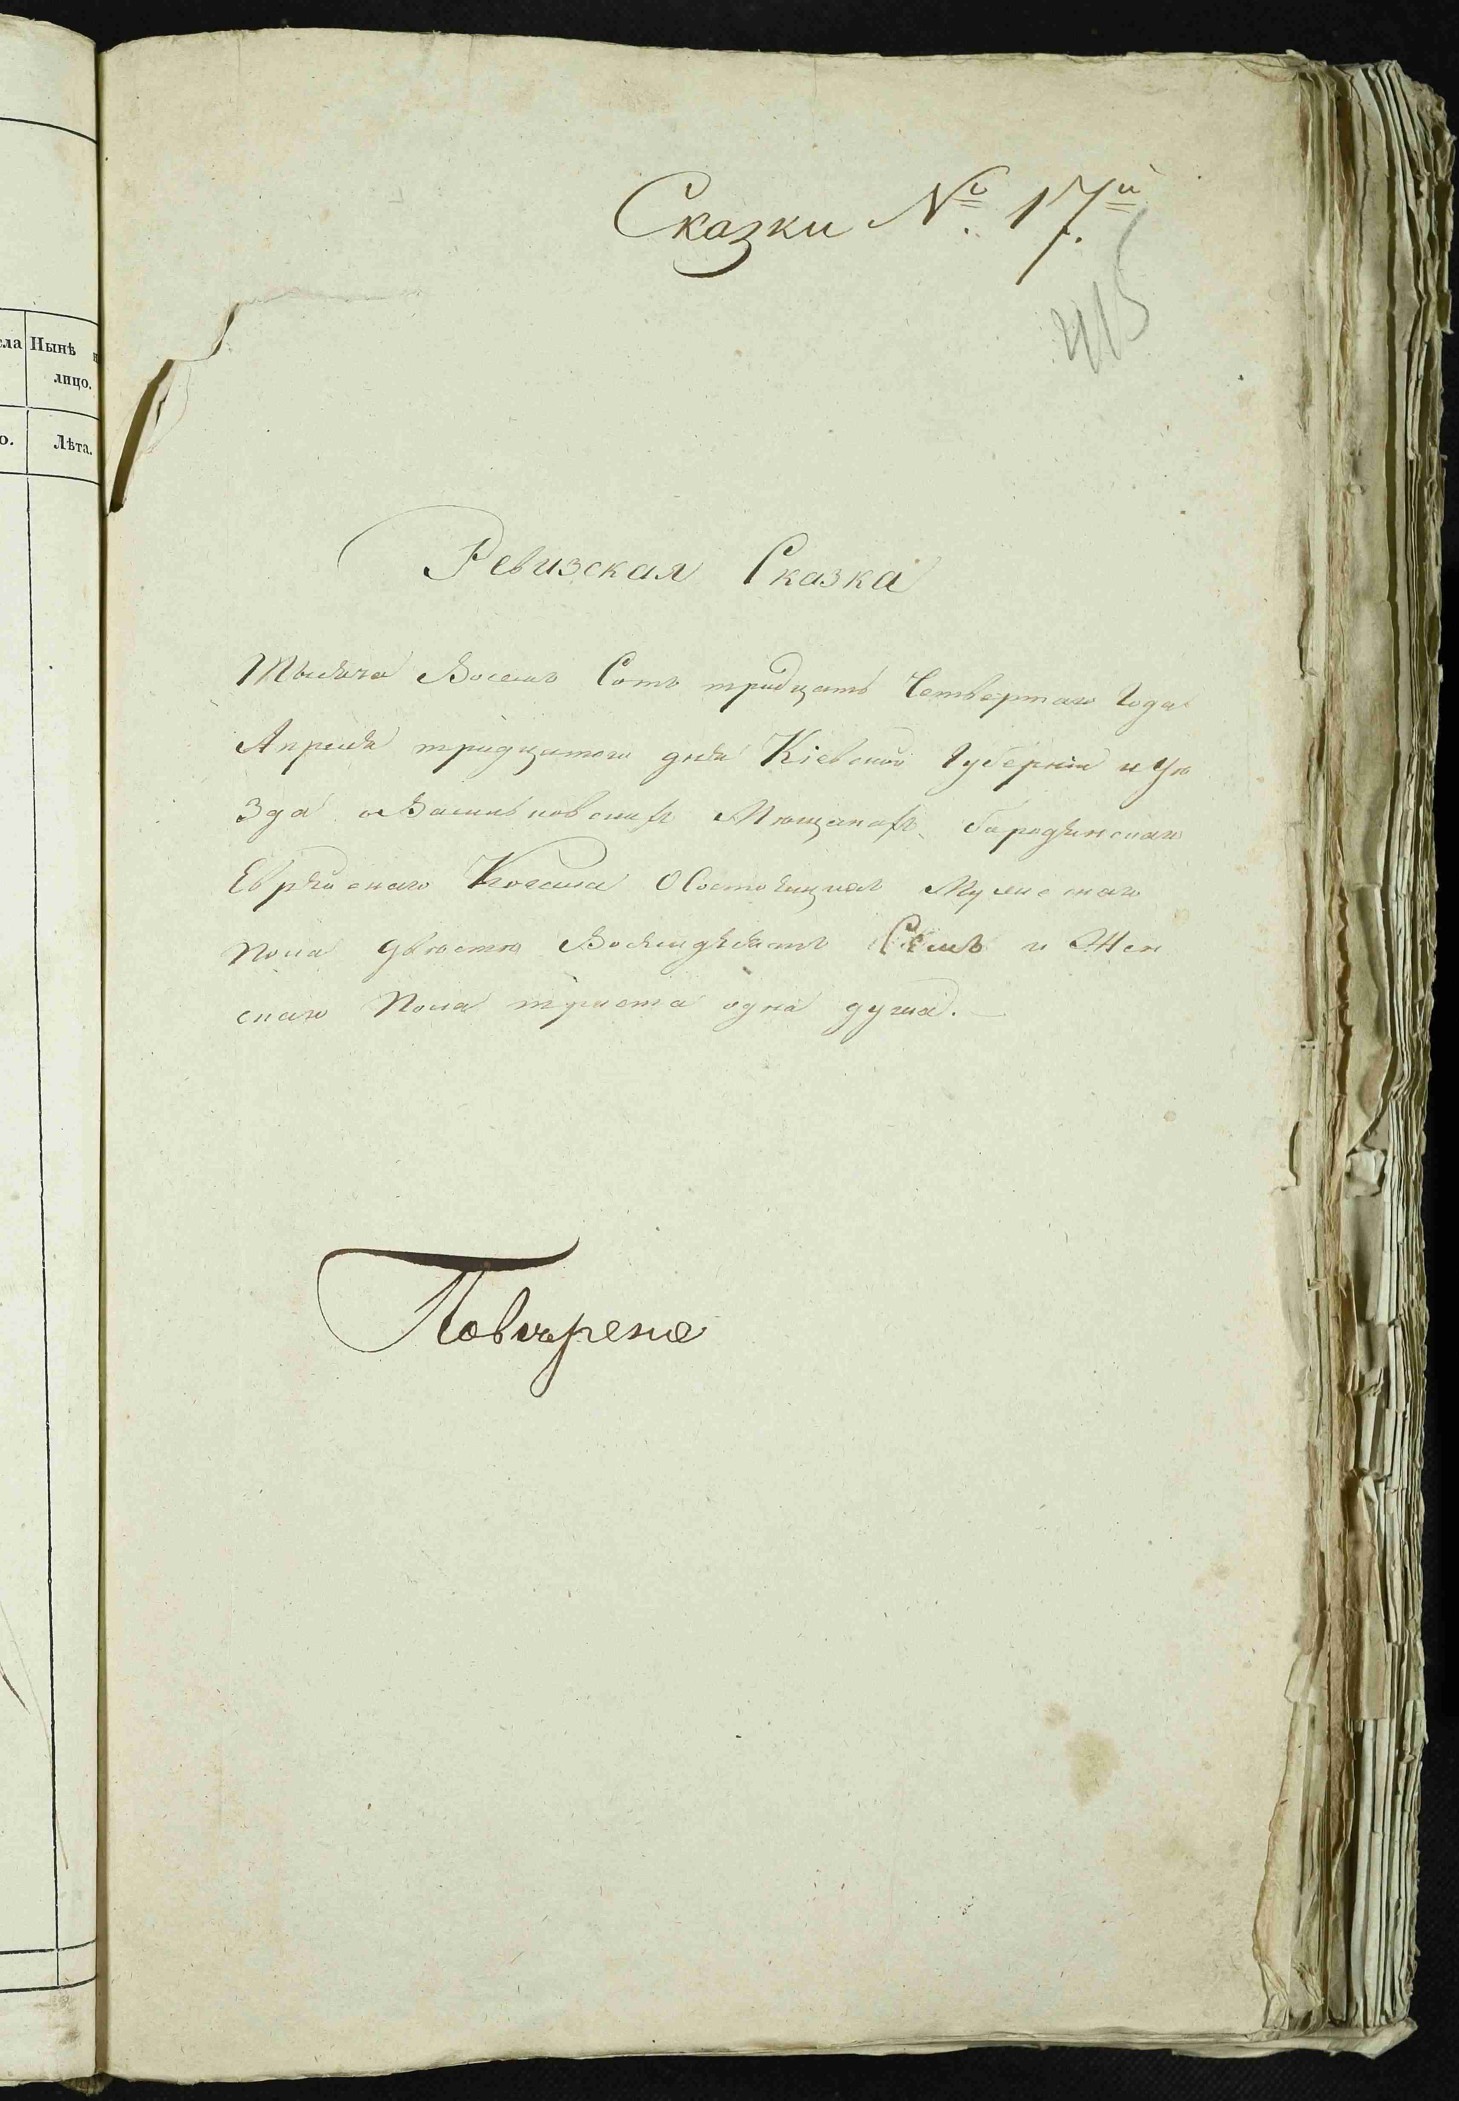 Сказки № 17й
415
ела Нынѣ н
лицо.
о. Лѣта.
Ревизская Сказка
Тысяча Восемь Сотъ тридцать Четвертаго Года
Апреля тридцатого дня Кіевской Губерніи и Уѣ
зда о Васильковскихъ Мѣщанахъ
Еврейскаго Кагала О Состоящихъ Мужескаго
пола двѣстѣ Восемдѣсятъ Семь и Жен
скаго пола триста одна душа.
Повѣрено